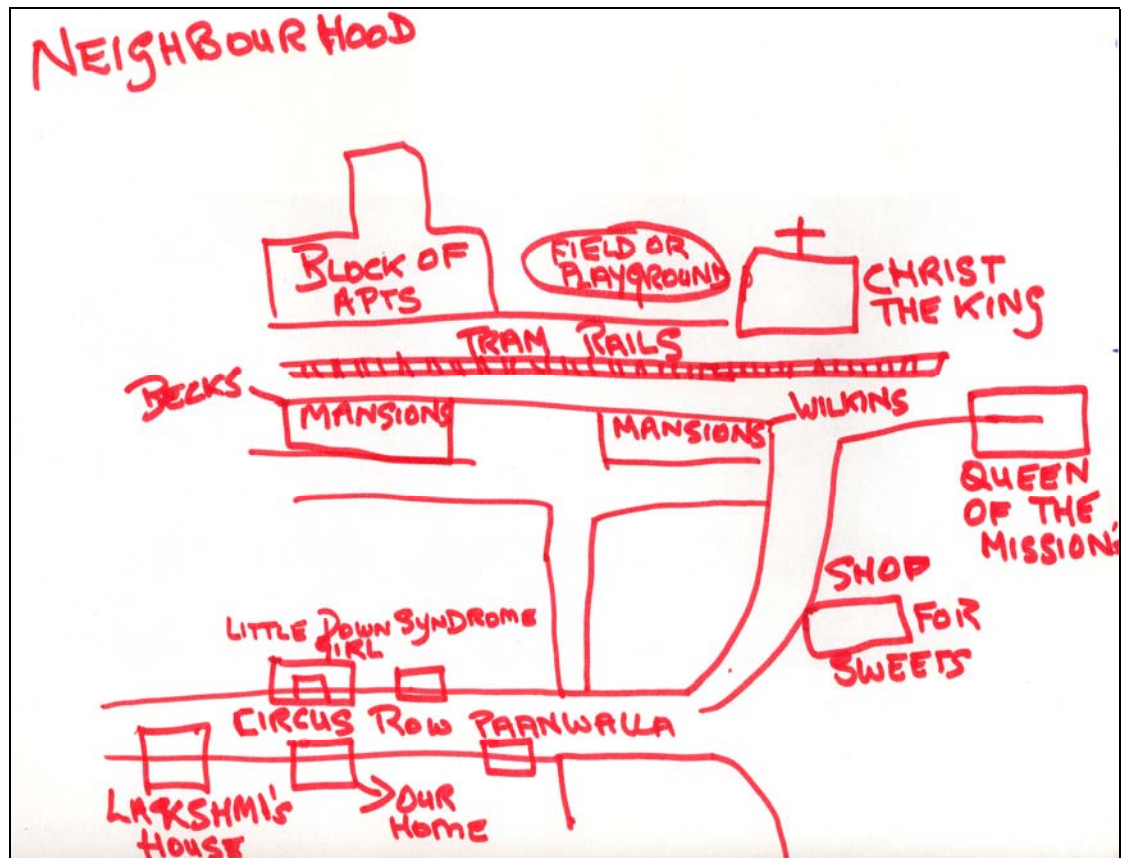 NEIGHBOURHOOD
BLOCK OF
APTS
FIELD OR
PLAYGROUND
CHRIST
THE KING
TRAM RAILS
BECKS
MANSIONS
MANSIONS
WILKINS
QUEEN
OF THE
MISSION'S
SHOP
FOR
SWEETS
LITTLE DOWN SYNDROME
GIRL
CIRCUS ROW PAANWALLA
LAKSHMI'S
HOUSE
OUR
HOME